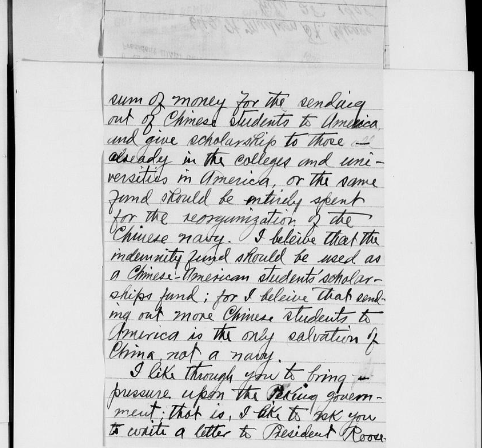 sum of money for the sending
out of Chinese students to America,
and give scholarship to those —
already in the colleges and uni-
versities in America, or the same
fund should be entirely spent
for the reorganization of the
Chinese navy. I beleive that the
indemnity fund should be used as
a Chinese-American students' scholar-
ships fund; for I beleive that send-
ing out more Chinese students to
America is the only salvation of
China, not a navy.
I like through you to bring —
pressure upon the Peking govern-
ment; that is, I like to ask you
to write a letter to President Roose-